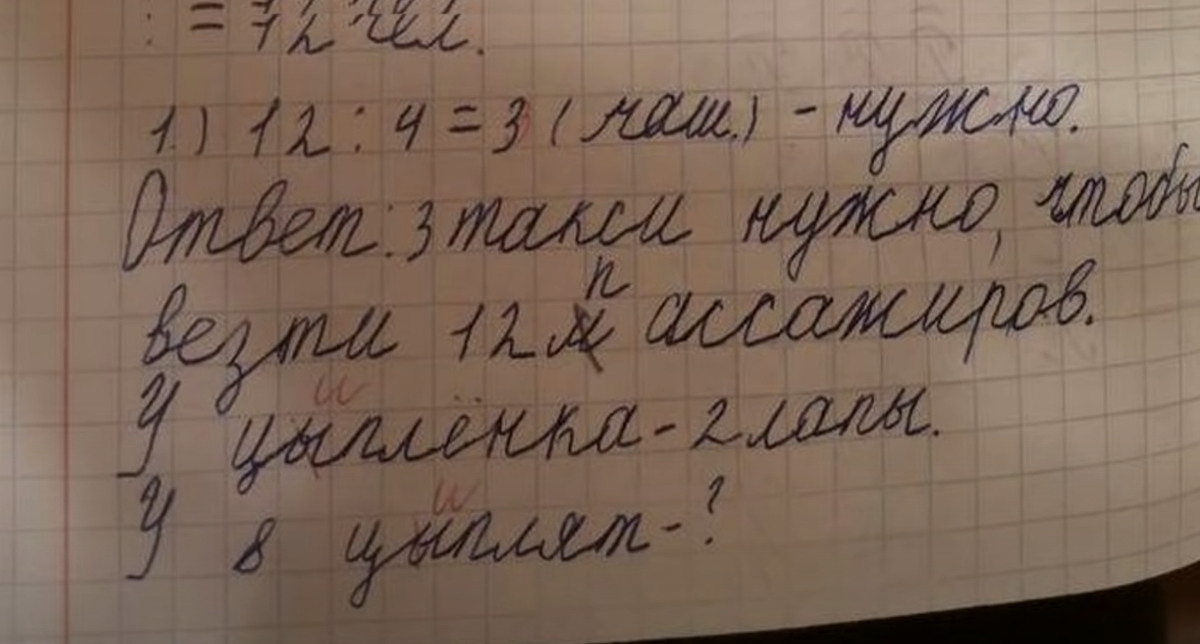 : = 12 чел.
1.) 12 : 4 = 3 (маш.) - нужно.
Ответ: 3 такси нужно, чтобы
везти 12 пассажиров.
У цыплёнка - 2 лапы.
У 8 цыплят - ?